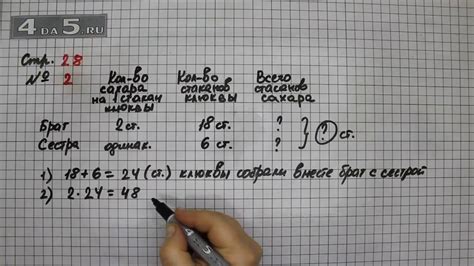 4DA5.RU
Стр. 28
№ 2
Кол-во сахара на 1 стакан клюквы
Кол-во стаканов клюквы
Всего стаканов сахара
Брат 2 ст. 18 ст. ? } ? ст.
Сестра одинак. 6 ст. ?
1) 18 + 6 = 24 (ст.) клюквы собрали вместе брат с сестрой
2) 2 · 24 = 48